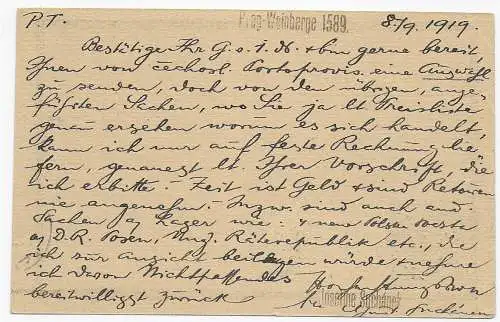 P.T. Prag-Weinberge 1589. 8./9. 1919.
Bestätige Ihr G. s. 1. ds. & bin gerne bereit,
Ihnen von čechosl. Portoprovis. eine Auswahl
zu senden, doch von den übrigen, ange-
führten Sachen, wo Sie ja lt. Preisliste
genau ersehen worum es sich handelt,
kann ich nur auf feste Rechnung lie-
fern, genauest lt. Ihrer Vorschrift, die
ich erbitte. Zeit ist Geld & sind Retouren
nie angenehm. Inzw. sind auch and.
Sachen a/ Lager wie: 4 neue Polska Poczta
a/ D.R. Posen, Ung. Räterepublik etc., die
ich zur Ansicht beilegen würde & nehme
ich davon Nichtpassendes
bereitwilligst zurück
Josefine Suchánek